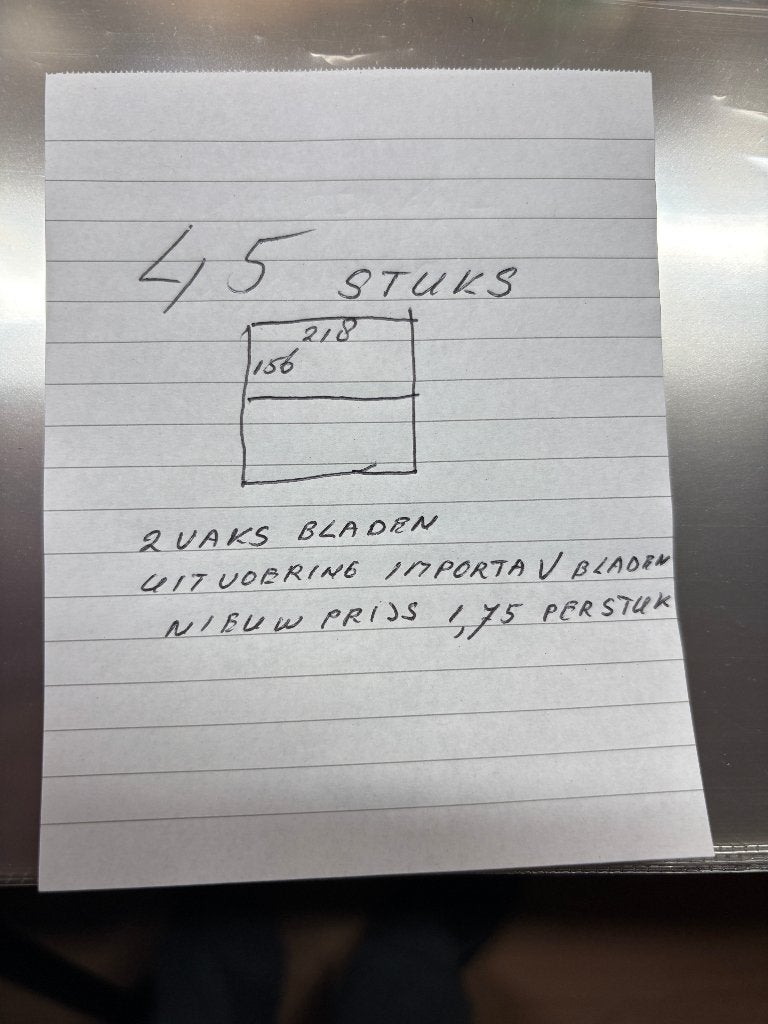 45 STUKS
218
156
2 VAKS BLADEN
UITVOERING IMPORTA V BLADEN
NIEUW PRIJS 1,75 PER STUK